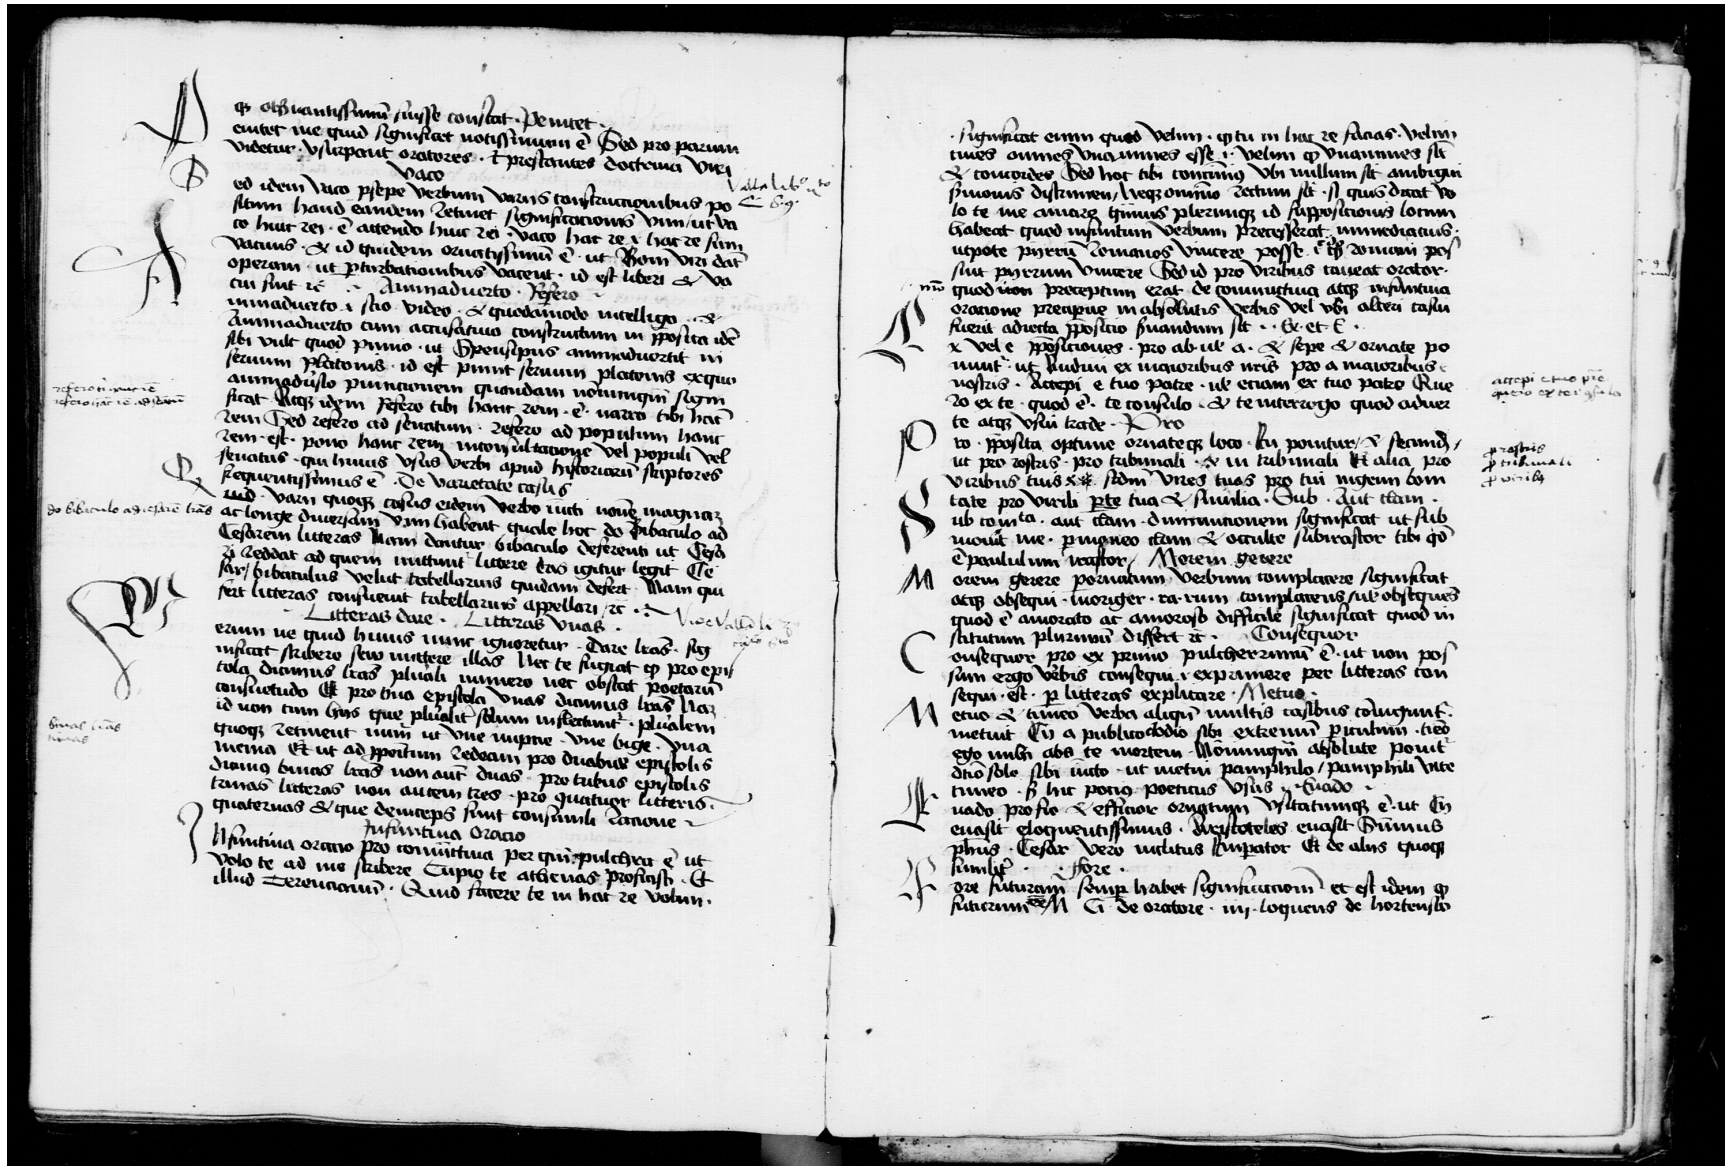 qꝫ obſuantissimū fuisse constat · Penitet ·
enitet me quid significet notissimum ē Sed pro parum
videtur · vsurpant oratores · & prestantes doctrina viri
Vaco
ed idem vaco psepe verbum variis constructionibus po
situm haud eandem retinet significationis vim / ut va
co huic rei · ē attendo huic rei · vaco hac re · i · hac re sum
vacuus · & id quidem ornatissimū ē · ut Boni viri dāt
operam · ut pturbationibus vacent · id est liberi & va
cui sint rc̄ · Animaduerto · Refero ·
nimaduerto · i · scio · video · & quodāmodo intelligo · &
Animaduerto cum accusatiuo constructum in pposita idē
sibi vult quod punio · ut Speusipus animaduertit in
seruum Platonis · id est punit seruum platonis ex quo
animaduersio punitionem quandam nōnunqm̄ signi
ficat Atqꝫ idem Refero tibi hanc rem · ē · narro tibi hāc
rem Sed refero ad senatum · refero ad populum hanc
rem · est · pono hanc rem in consultacione vel populi vel
senatus · qui huius vsus verbi apud historicarū scriptores
frequentissimus ē · De varietate casus
uid · varii quoqꝫ casus eidem verbo iucti
ac longe diuersam vim habent quale hoc do Bibaculo ad
Cesarem litteras Nam dantur bibaculo deferenti ut Cesa
ri reddat ad quem mittunt̄ littere lr̄as igitur legit Ce
sar / bibaculus velut tabellarius quidam defert Nam qui
fert litteras consueuit tabellarius appellari / rc̄ ·
Litteras dare · Litteras vnas ·
erum ne quid huius nunc ignoretur · Dare lr̄as · sig
nificat scribere seu mittere illas Nec te fugiat qꝫ pro epis
tola dicimus lr̄as plurali numero nec obstat poetarū
consuetudo Et pro vna epistola vnas dicimus lr̄as Nā
id non cum hiis que plualit̄ solum inflectunt̄ · pluralem
quoqꝫ retinent num̄ ut vne nuptie · vne bige · vna
menia Et ut ad ppositum redeam pro duabus epistolis
dicimus binas lr̄as non aūt duas · pro tribus epistolis
trinas litteras non autem tres · pro quatuor litteris ·
quaternas & que deinceps sunt consimili racione
Infinitiua oracio
Nfinitiua oracio pro coniūctiua per quā pulchra ē ut
volo te ad me scribere Cupio te athenas proficisci · Et
illud Terencianū · Quid facere te in hac re velim ·
Valla libº
refero tibi hanc rē
refero hāc rē ad senatū
do bibaculo ad cesarē lr̄as
binas lr̄as
trinas
· significat enim quod velim · qꝫ tu in hac re facias · velim
ciues omnes vnanimes esse · i · velim qꝫ vnanimes sīt
& concordes Sed hoc tibi vbi nullum sit ambigui
sermonis discrimen / Neqꝫ omnino rectum sit · si quis dicat vo
lo te me amare quis plerumqꝫ id suppositionis locum
habeat quod infinitum verbum precesserat immediatius ·
utpote pirrū romanos vincere posse · romani pos
sint pyrrum vincere Sed id pro viribus caueat orator ·
quod preceptum erat · de coniuctiua atqꝫ infinitiua
oratione precipue in absolutis verbis vel vbi alteri casui
fuerit adiecta ppositio suandum sit · Ex · et E ·
x vel e ppositiones · pro ab · ul̄ a · & sepe & ornate po
nunt̄ · ut Audiui ex maioribus nr̄is pro a maioribus
nostris · Accepi e tuo patre · ul̄ etiam ex tuo patre Que
ro ex te · quod ē · te consulo · & te interrogo quod aduer
te atqꝫ vsui trade · Pro
ro · pposita optime ornateqꝫ loco · In ponitur / & secundū /
ut pro rostris · pro tribunali · & in tribunali Et alia pro
viribus tuis · scdm̄ vires tuas pro tui ingenii boni
tate pro virili pte tua & similia · Sub · Aut clam ·
ub comta · aut clam · diminutionem significat ut sub
monuit me · pmoneo clam & occulte subirascor tibi qd̄
ē paululum irascor / Morem gerere
orem gerere pornatum verbum complacere significat
atqꝫ obsequi · moriger · ra · rum complacens / ul̄ obsequēs
quod ē amorato ac amoroso difficile significat quod in
stitutum plurimū differt rc̄ · Consequor
onsequor pro exprimo pulcherrimū ē · ut non pos
sum ergo verbis consequi · i · exprimere per litteras con
sequi · est · p litteras explicare · Metuo ·
etuo & timeo verba aliqn̄ multis casibus coniugunt̄ ·
metuit Cn̄ a publio clodio sibi extremū piculum · timeo
ego mihi abs te mortem · Nōnunqm̄ absolute ponit̄
dtiō solo sibi iūcto · ut metui pamphilo / pamphili vite
timeo · sꝫ hic potius poeticus vsus · Euado ·
uado pro fio & efficior ornatum vsitatumqꝫ ē · ut Cn̄
euasit eloquentissimus · Aristoteles euasit Summus
phūs · Cesar vero inclitus Imperator Et de aliis quoqꝫ
similit̄ · · ffore ·
ore futuram semp habet significationem et est idem qꝫ
futurum ee M Ci de oratore · iij · loquens de hortensio
accepi e tuo pr̄e
quero ex te
p rostris
p tribunali
p viribꝫ